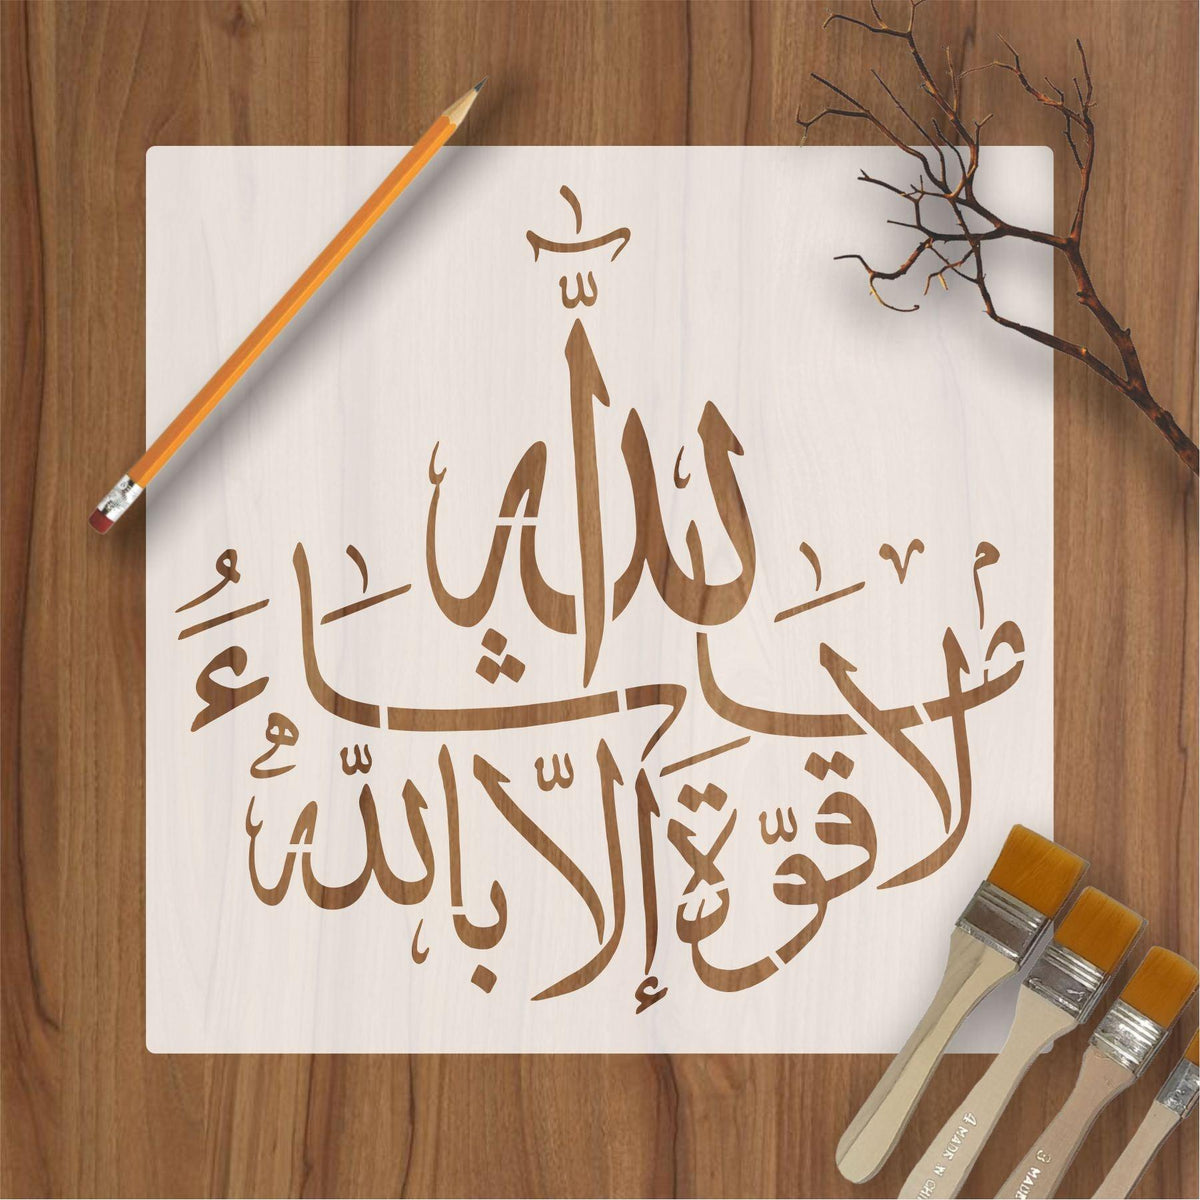 ما شاء الله
لا قوّة إلّا باللّه
4 MADE IN CHI
3 MAD